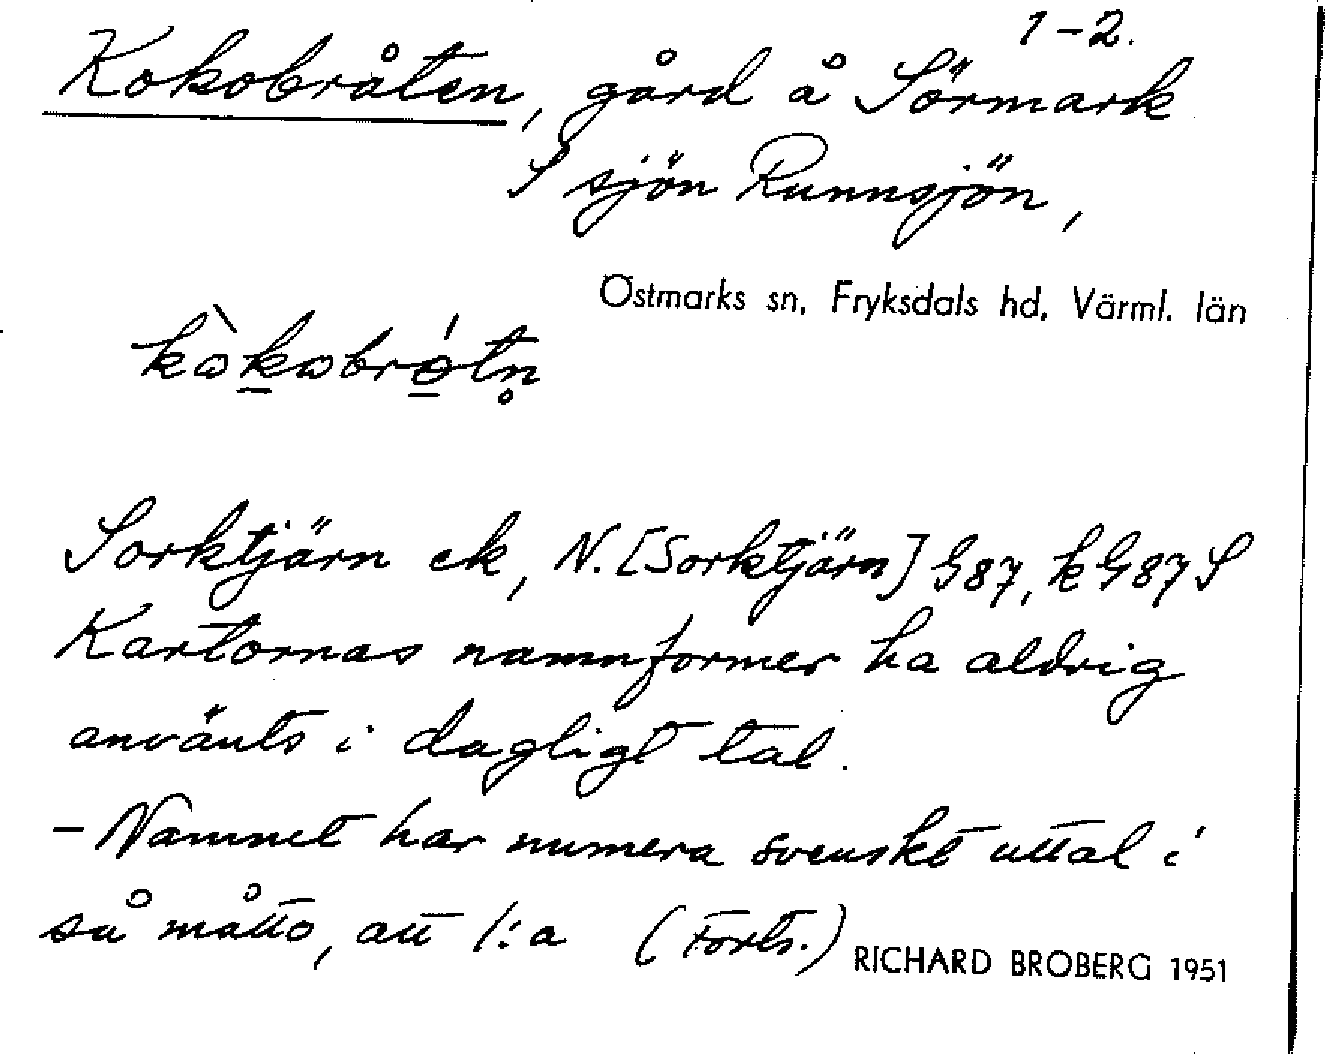 1-2.
Kokobråten, gård å Sörmark
S sjön Runnsjön,
Östmarks sn, Fryksdals hd, Värml. län
kòkobrótn̥
Sorktjärn ek, N. [Sorktjärn] G87, kG87 S
Kartornas namnformer ha aldrig
använts i dagligt tal.
- Namnet har numera svenskt uttal i
så måtto, att 1:a (Forts.)
RICHARD BROBERG 1951